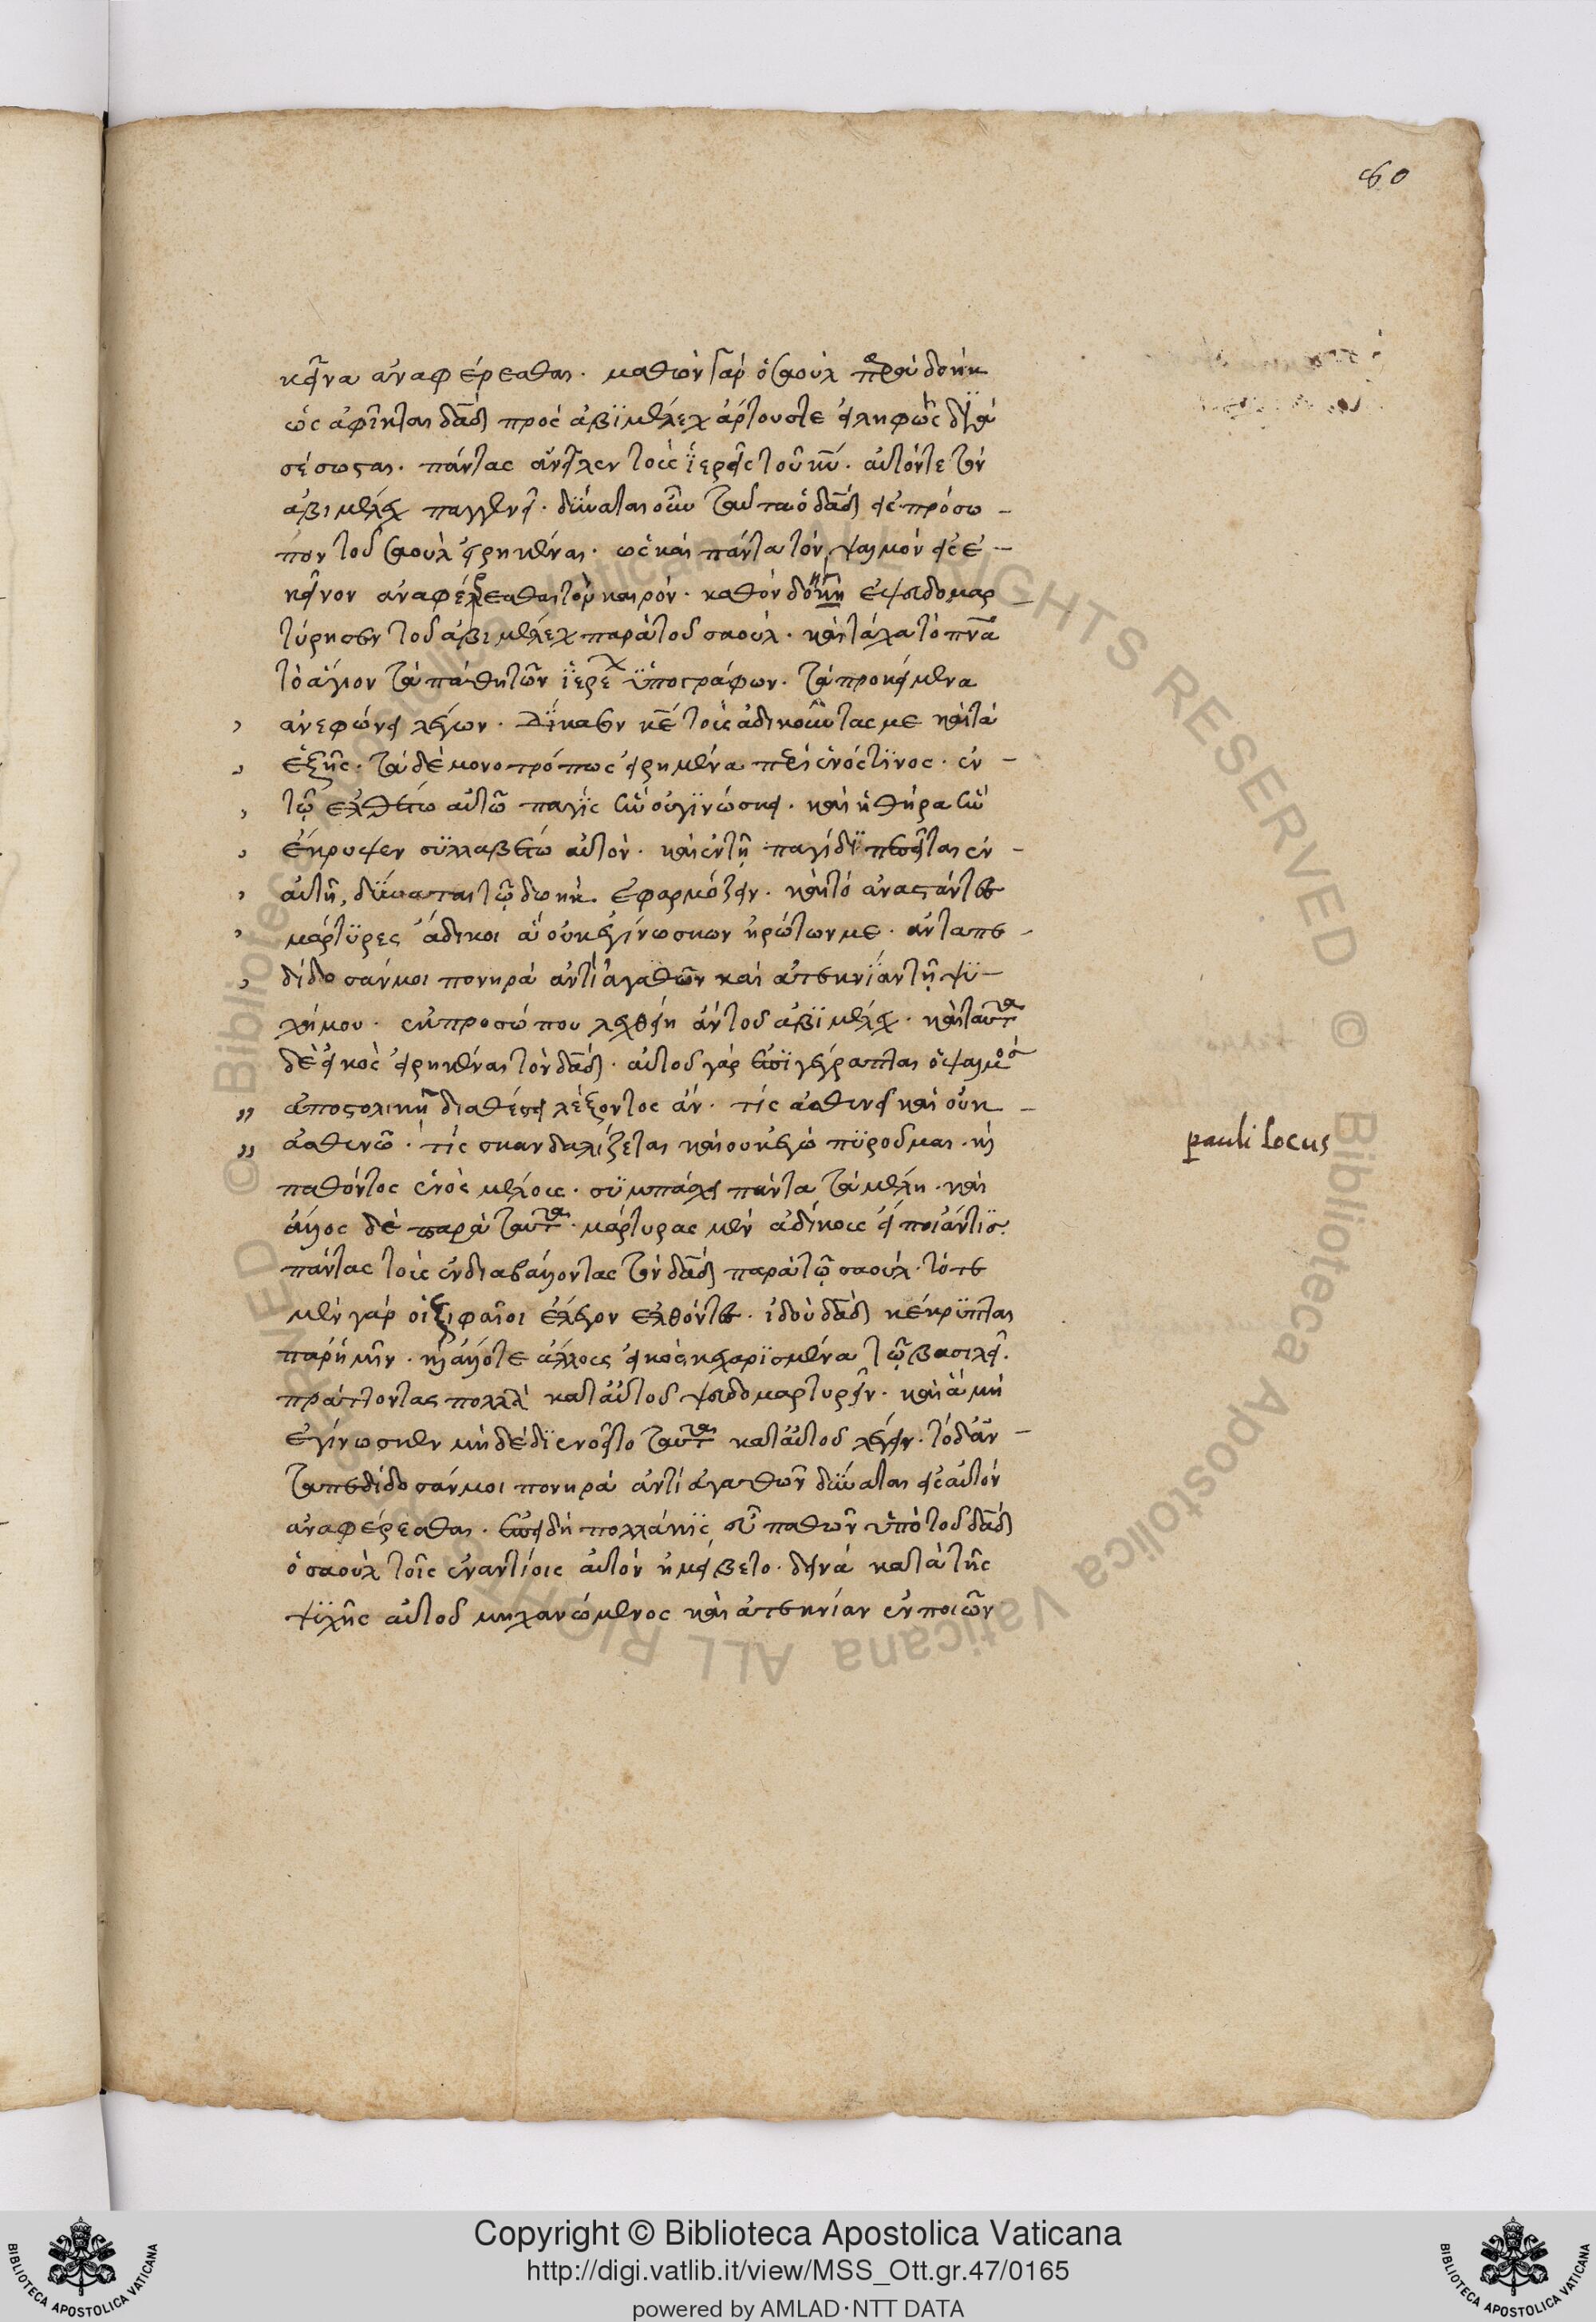 80
κεῖνα ἀναφέρεσθαι. μαθὼν γὰρ ὁ σαοὺλ παρὰ δωὴκ
ὡς ἀφῖκται δᾱδ πρὸς ἀβϊμέλεχ ἄρτους τε εἰληφὼς
σέσωσται. πάντας ἀνεῖλεν τοὺς ἱερεῖς τοῦ κῡ. αὐτόν τε τὸν
ἀβιμέλεχ παγγενεῖ. δύναται οὖν ταῦτα ὁ δᾱδ εἰς πρόσω-
πον τοῦ σαοὺλ εἰρηκέναι. ὡς καὶ πάντα τὸν ψαλμὸν εἰς ἐ-
κεῖνον ἀναφέρεσθαι τὸν καιρόν. καθ' ὃν δωὴκ ἐψευδομαρ-
τύρησεν τοῦ ἀβιμέλεχ παρὰ τοῦ σαούλ. καὶ τάχα τὸ πνᾱ
τὸ ἅγιον τὰ πάθη τῶν ἱερέ ὑπογράφων. τὰ προκείμενα
ἀνεφώνει λέγων. Δίκασον κε̄ τοὺς ἀδικοῦντας με καὶ τὰ
ἑξῆς. τὰ δὲ μονοτρόπως εἰρημένα περὶ ἑνός τινος. ἐν-
τῷ ἐλθέτω αὐτῷ παγὶς ἣν οὐ γινώσκει. καὶ ἡ θήρα ἣν
ἔκρυψεν συλλαβέτω αὐτόν. καὶ ἐν τῇ παγίδι πεσεῖται ἐν-
αὐτῇ, δύναται τῷ δωὴκ. ἐφαρμόζειν. καὶ τὸ ἀναστάντες
μάρτυρες ἄδικοι ἃ οὐκ ἐγίνωσκον ἠρώτων με. ἀνταπε-
δίδοσαν μοι πονηρὰ ἀντὶ ἀγαθῶν καὶ ἀτεκνίαν τῇ ψυ-
χῇ μου. ἐκ προσώπου λεχθείη ἂν τοῦ ἀβϊμέλεχ. καὶ ταῦτα
δὲ εἰκὸς εἰρηκέναι τὸν δᾱδ. αὐτοῦ γὰρ ἐπιγέγραπται ὁ ψαλμός
ἀποστολικῇ διαθέσει λέξοντος ἄν. τίς ἀσθενεῖ καὶ οὐκ-
ἀσθενῶ. τίς σκανδαλίζεται καὶ οὐκ ἐγὼ πυροῦμαι. καὶ
pauli locus
παθόντος ἑνὸς μέλους. συμπάσχει πάντα τὰ μέλη. καὶ
ἄλλος δὲ παρὰ ταῦτα. μάρτυρας μὲν ἀδίκους εἴποι ἄν τις.
πάντας τοὺς ἐνδιαβάλλοντας τὸν δᾱδ παρὰ τῷ σαούλ. τότε
μὲν γὰρ οἱ ζιφαῖοι ἔλεγον ἐλθόντες. ἰδοὺ δᾱδ κέκρυπται
παρ' ἡμῖν. καὶ ἄλλοτε ἄλλους εἰκὸς κεχαρισμένα τῷ βασιλεῖ.
πράττοντας πολλὰ κατ' αὐτοῦ ψευδομαρτυρεῖν. καὶ ἃ μὴ
ἐγίνωσκεν μὴ δέ τις ἐνοεῖτο ταῦτα κατ' αὐτοῦ λέγειν. τὸ δ' ἀν-
ταπεδίδοσάν μοι πονηρὰ ἀντὶ ἀγαθῶν δύναται εἰς αὐτὸν
ἀναφέρεσθαι. ἐπειδὴ πολλάκις εὖ παθὼν ὑπὸ τοῦ δᾱδ
ὁ σαοὺλ τοῖς ἐναντίοις αὐτὸν ἠμείβετο. δεινὰ κατὰ τῆς
ψυχῆς αὐτοῦ μηχανώμενος καὶ ἀτεκνίαν ἐμποιῶν
Copyright © Biblioteca Apostolica Vaticana
http://digi.vatlib.it/view/MSS_Ott.gr.47/0165
powered by AMLAD·NTT DATA